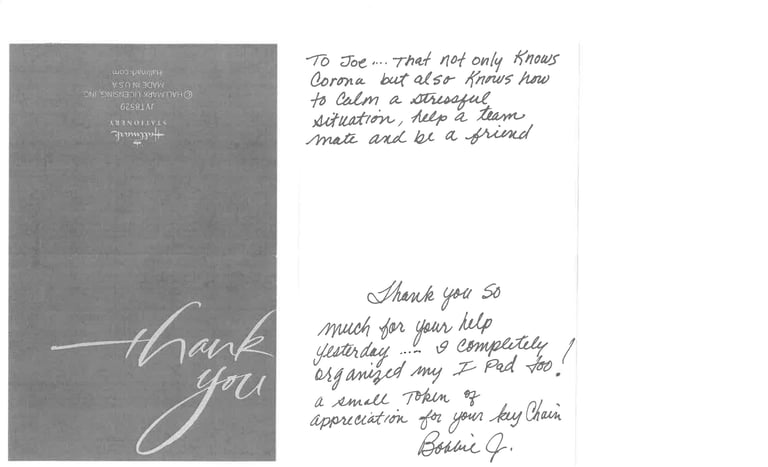 Hallmark.com
MADE IN U.S.A.
© HALLMARK LICENSING, INC.
JYT8529
STATIONERY
Hallmark
thank
you
To Joe .... That not only Knows
Corona but also Knows how
to Calm a stressful
situation, help a team
mate and be a friend
Thank you so
much for your help
yesterday ..... I completely
organized my I Pad too!
a small Token of
appreciation for your key Chain
Bobbie J.